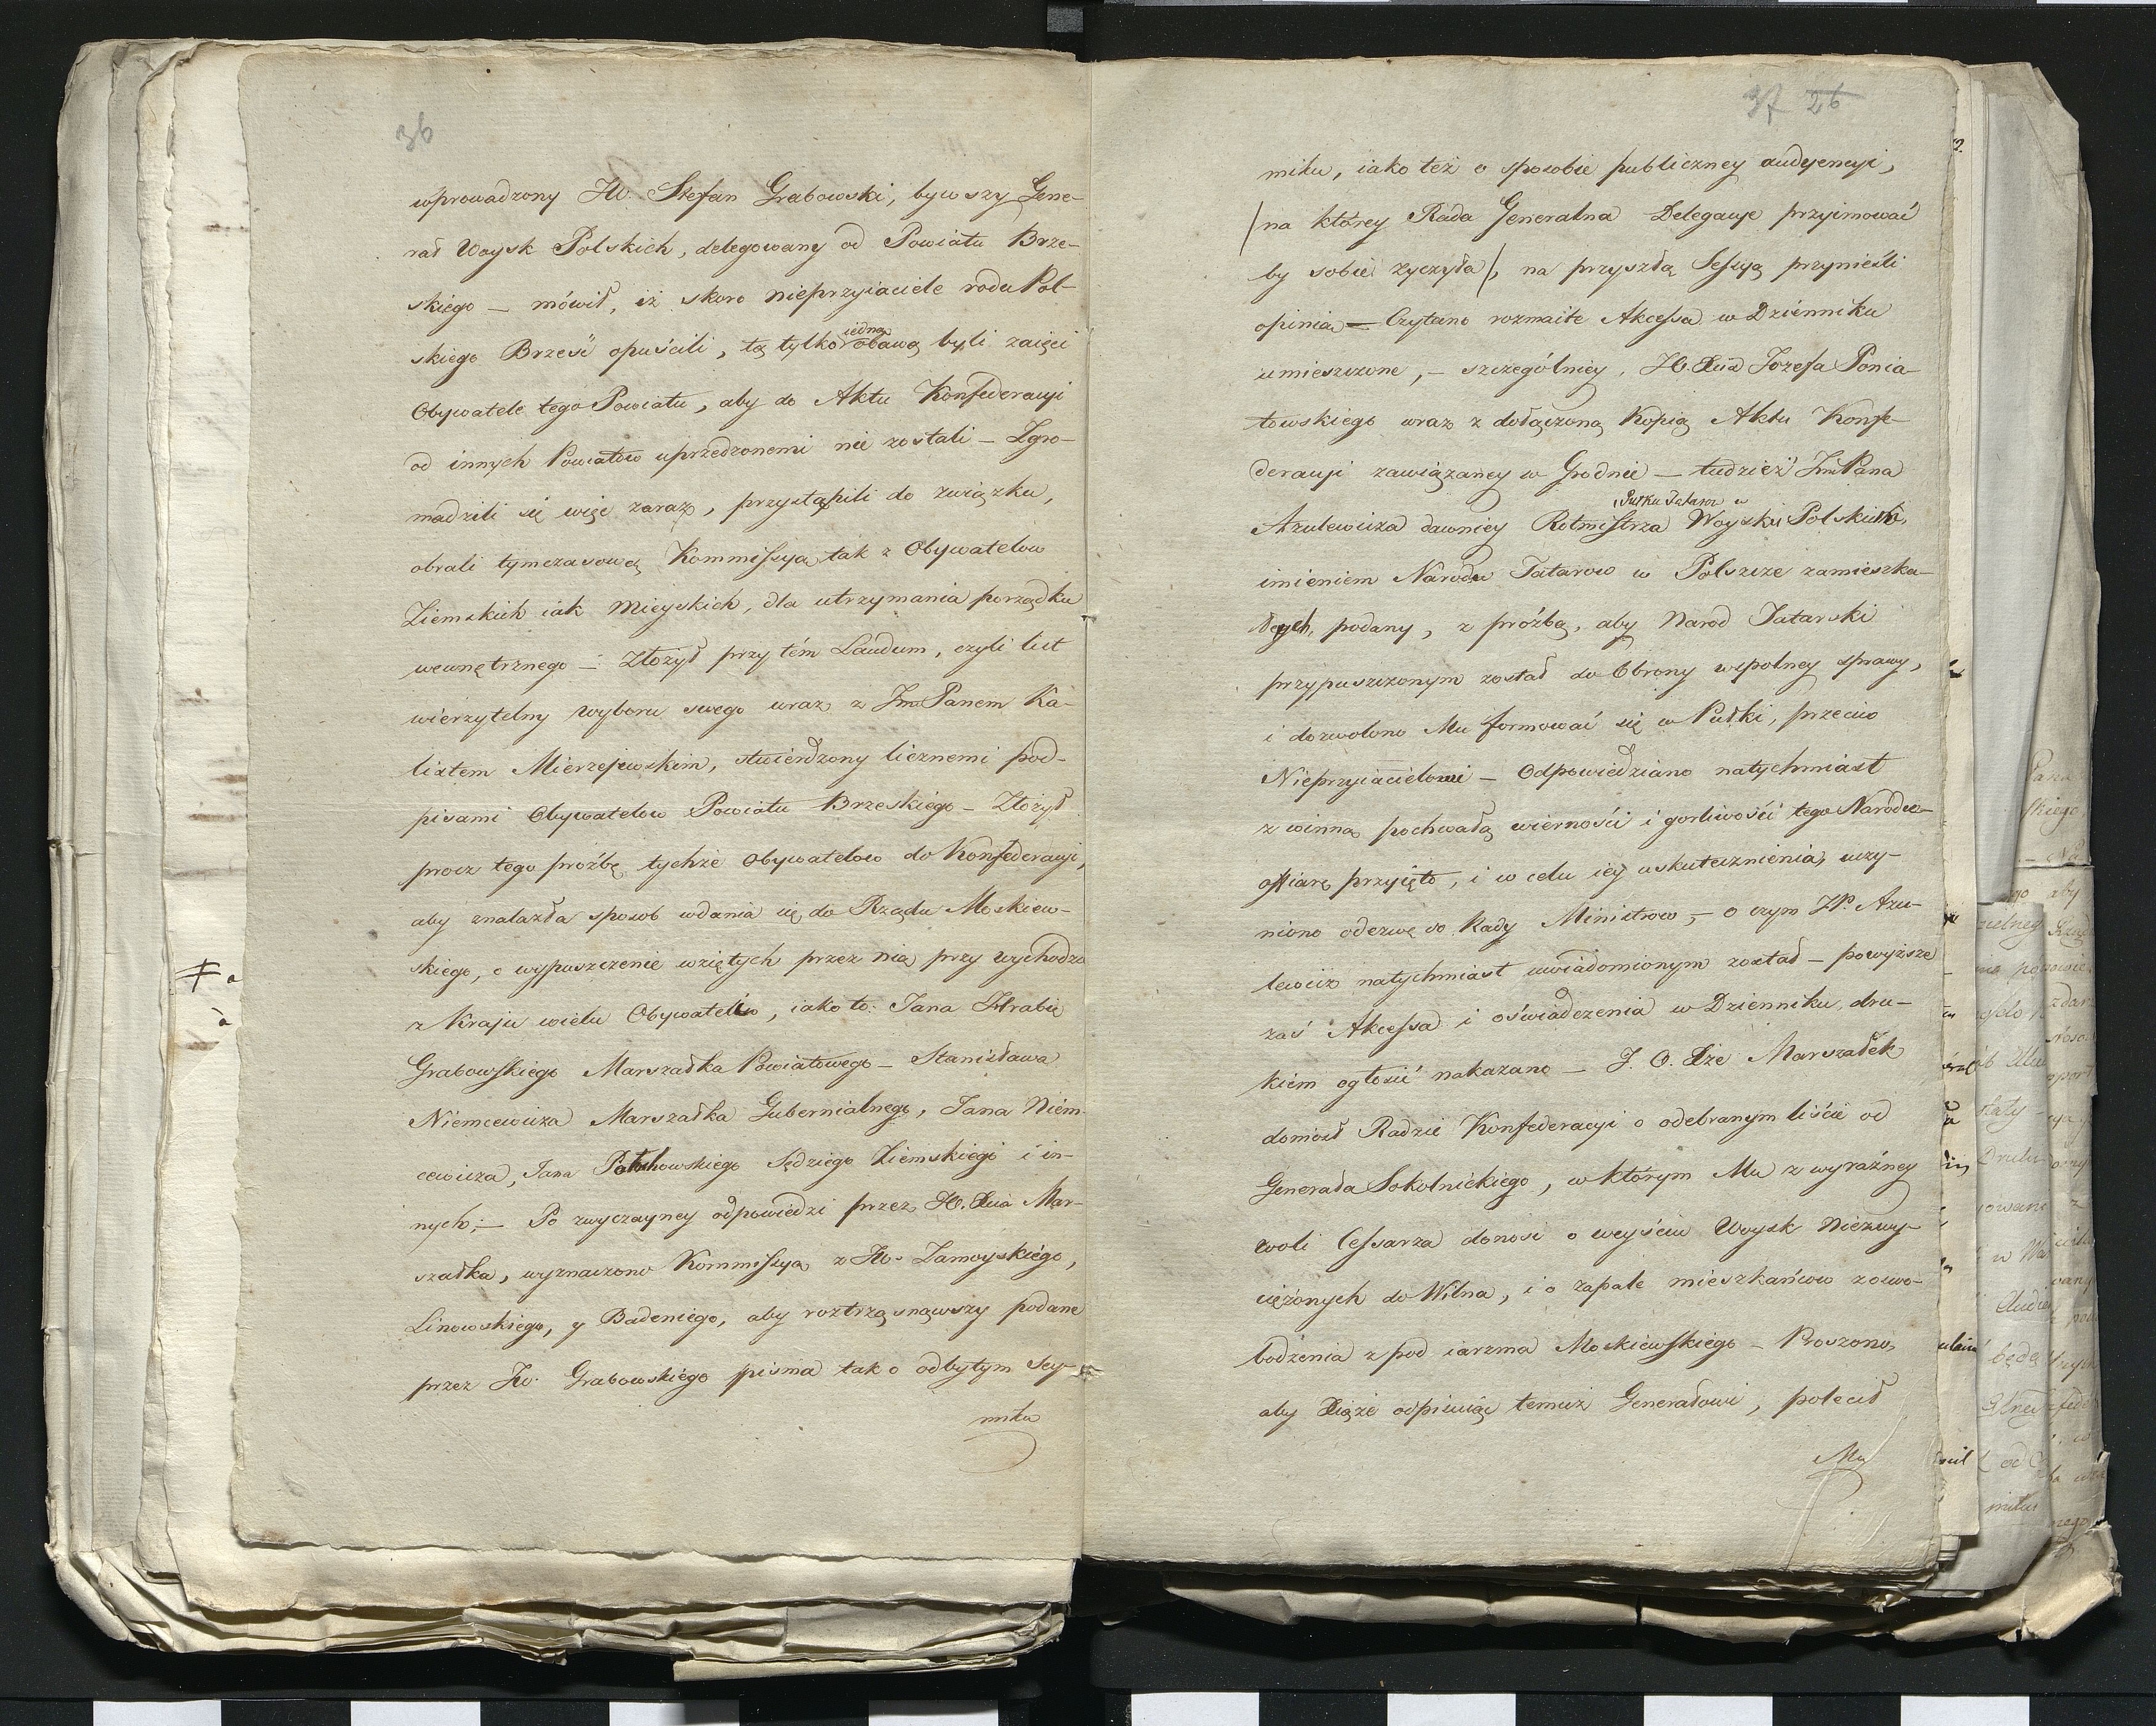 36
wprowadzony JW. Stefan Grabowski, bywszy Gene-
rał Woysk Polskich, delegowany od Powiatu Brze-
skiego — mówił, iż skoro nieprzyiaciele rodu Pol-
skiego Brześć opuścili, tą tylko iedną obawą byli zaięci
Obywatele tego Powiatu, aby do Aktu Konfederacyi
od innych Powiatow uprzedzonemi nie zostali — Zgro-
madzili się więc zaraz, przystąpili do związku,
obrali tymczasową Kommissyą tak z Obywatelow
Ziemskich iak Mieyskich, dla utrzymania porządku
wewnętrznego — Złożył przy tém Laudum, czyli list
wierzytelny wyboru swego wraz z Jm Panem Ka-
lixtem Mierzejewskim, stwierdzony licznemi pod-
pisami Obywatelow Powiatu Brzeskiego — Złożył
procz tego prożbę tychże Obywatelow do Konfederacyi,
aby znalazła sposob udania się do Rządu Moskiew-
skiego, o wypuszczenie wziętych przez nią przy wychodzie
z Kraju wielu Obywatelów, iako to: Jana Hrabię
Grabowskiego Marszałka Powiatowego — Stanisława
Niemcewicza Marszałka Gubernialnego, Jana Niem-
cewicza, Jana Sędziego Ziemskiego i in-
nych; — Po zwyczayney odpowiedzi przez JO. Xcia Mar-
szałka, wyznaczono Kommissyą z JW. Zamoyskiego,
Linowskiego, y Badeniego, aby roztrząsnąwszy podane
przez JW. Grabowskiego pisma tak o odbytym Sey-
miku
37 26
miku, iako też o sposobie publiczney audyencyi,
/na którey Rada Generalna Delegacye przyimować
by sobie życzyła/, na przyszłą Sessyą przynieśli
opinią — Czytano rozmaite Akcessa w Dzienniku
umieszczone, — szczególniey JO. Xcia Jozefa Ponia-
towskiego wraz z dołączoną Kopią Aktu Konfe-
deracyi zawiązaney w Grodnie — tudzież Jm Pana
Azulewicza dawniey Rotmistrza Pułku Tatarow w Woysku Polskim,
imieniem Narodu Tatarow w Polszcze zamieszka-
łych, podany, z prożbą, aby Narod Tatarski
przypuszczonym został do Obrony wspolney sprawy,
i dozwolono Mu formować się w Pułki, przeciw
Nieprzyiacielowi — Odpowiedziano natychmiast
z winną pochwałą wierności i gorliwości tego Narodu —
offiarę przyięto, i w celu iey uskutecznienia, uczy-
niono odezwę do Rady Ministrow, — o czym JP. Azu-
lewicz natychmiast uwiadomionym został — powyższe
zaś Akcessa i oświadczenia w Dzienniku, dru-
kiem ogłosić nakazano — J. O. Xże Marszałek
doniosł Radzie Konfederacyi o odebranym liście od
Generała Sokolnickiego, w którym Mu z wyraźney
woli Cessarza donosi o weyściu Woysk Niezwy-
ciężonych do Wilna, i o zapale mieszkańcow zoswo-
bodzenia z pod iarzma Moskiewskiego — Proszono,
aby Xiąże odpisuiąc temuż Generałowi, polecił
Mu